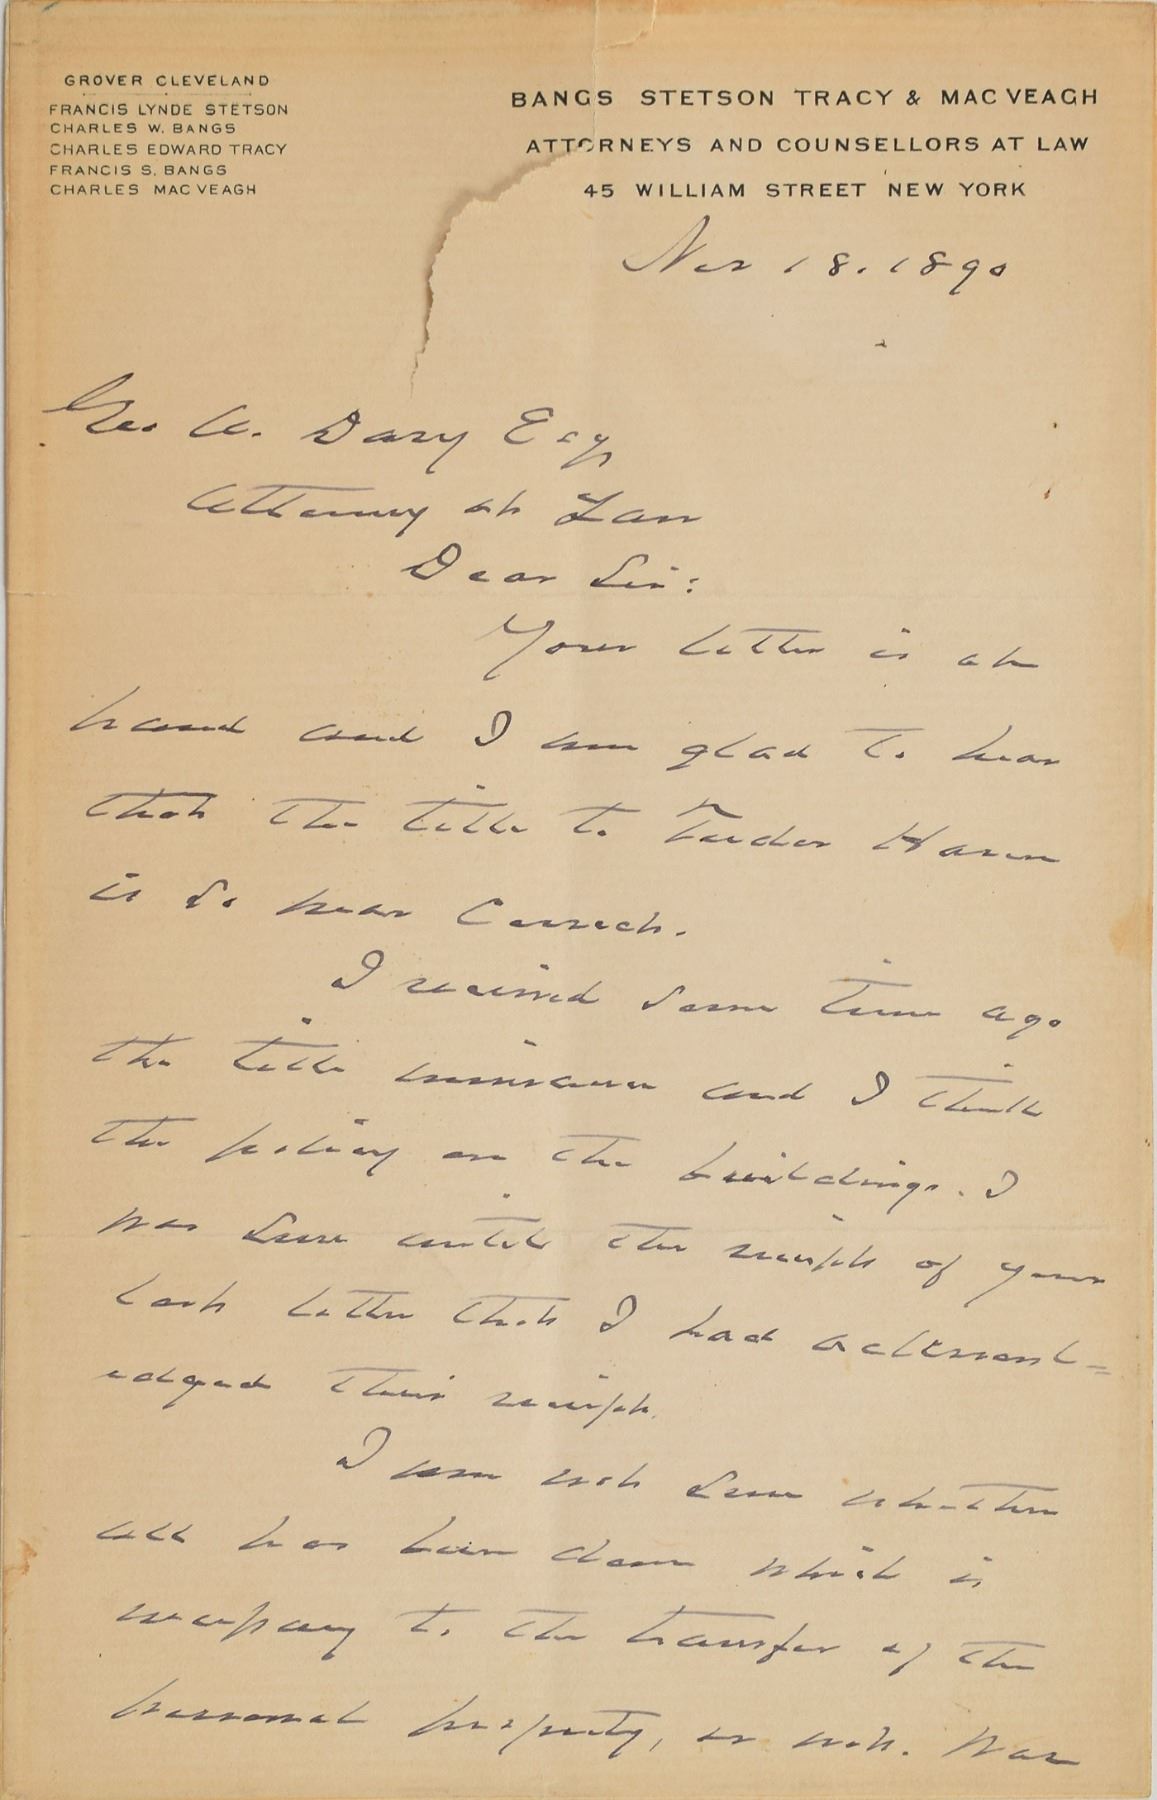 GROVER CLEVELAND
FRANCIS LYNDE STETSON
CHARLES W. BANGS
CHARLES EDWARD TRACY
FRANCIS S. BANGS
CHARLES MAC VEAGH
BANGS STETSON TRACY & MAC VEAGH
ATTORNEYS AND COUNSELLORS AT LAW
45 WILLIAM STREET NEW YORK
Nov 18. 1890
Geo. A. Davy Esq
Attorney at Law
Dear Sir:
Your letter is at
hand and I am glad to hear
that the title to Tudor Haven
is so near correct.
I received some time ago
the title insurance and I think
the policy on the buildings. I
was sure until the receipt of your
last letter that I had acknowl=
edged their receipt.
I am not sure whether
all has been done which is
necessary to the transfer of the
personal property, or not. Was